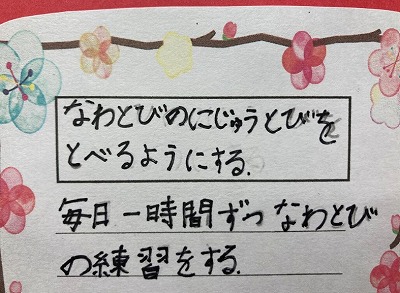 なわとびのにじゅうとびを
とべるようにする.
毎日一時間ずつなわとび
の練習をする.